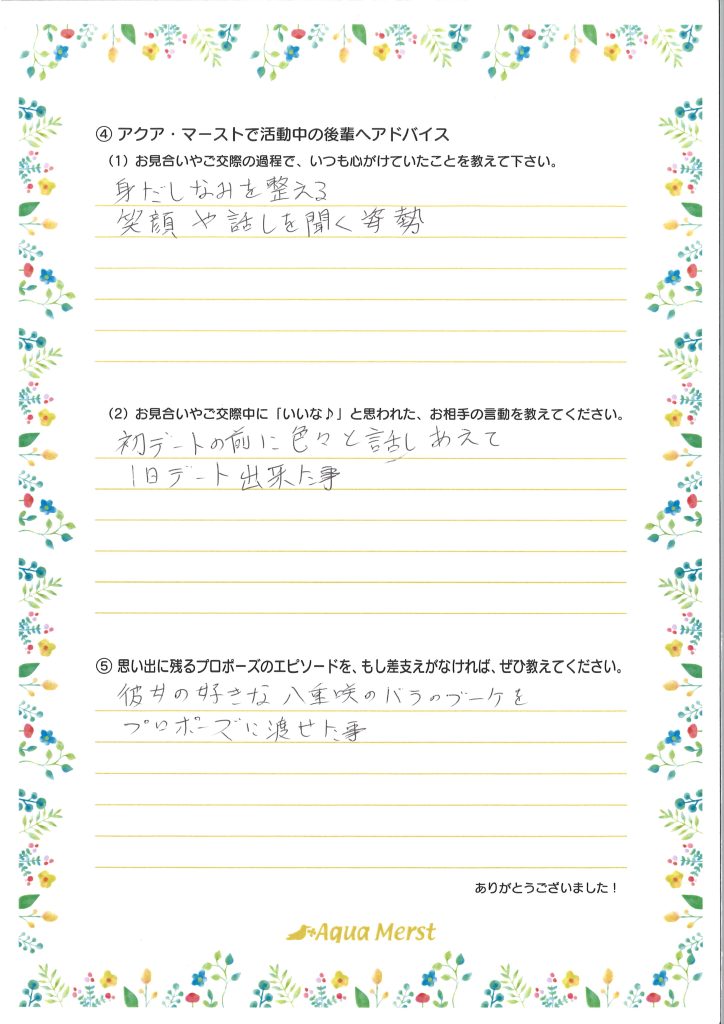 ④ アクア・マーストで活動中の後輩へアドバイス
（1）お見合いやご交際の過程で、いつも心がけていたことを教えて下さい。
身だしなみを整える
笑顔や話しを聞く姿勢
（2）お見合いやご交際中に「いいな♪」と思われた、お相手の言動を教えてください。
初デートの前に色々と話しあえて
1日デート出来た事
⑤ 思い出に残るプロポーズのエピソードを、もし差支えがなければ、ぜひ教えてください。
彼女の好きな八重咲のバラのブーケを
プロポーズに渡せた事
ありがとうございました！
Aqua Merst